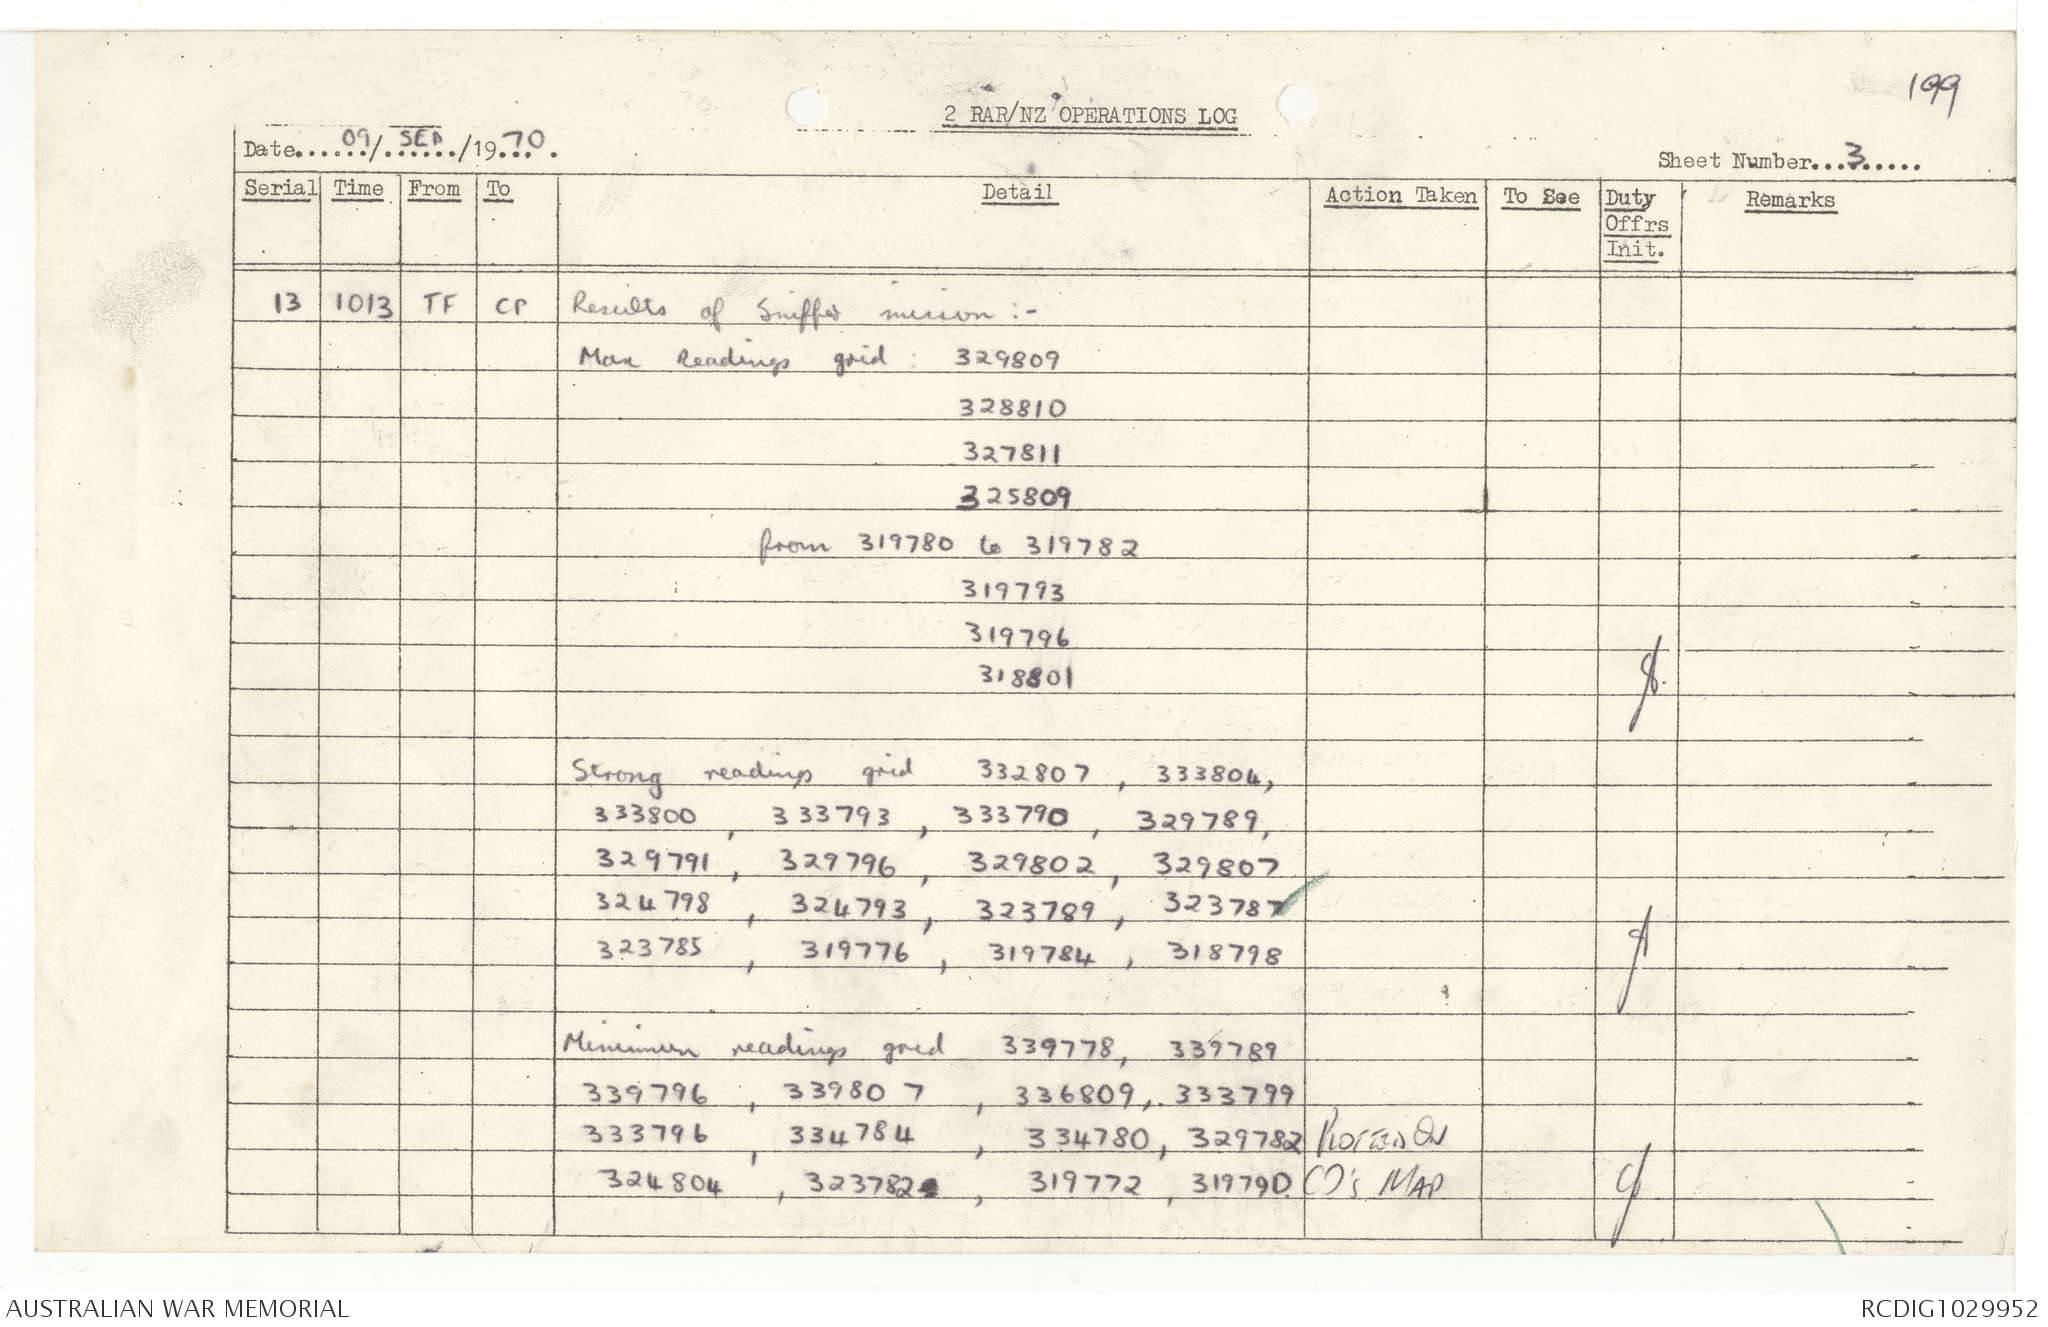 199
2 RAR/NZ OPERATIONS LOG
Date......09/.SEP.../1970.
Sheet Number...3.....
Serial Time From To Detail Action Taken To See Duty Offrs Init. Remarks
13 1013 TF CP Results of Sniffer mission :-
Max Readings grid : 329809
328810
327811
325809
from 319780 to 319782
319793
319796
318801
Strong readings grid 332807 , 333804,
333800 , 333793 , 333790 , 329789,
329791 , 329796 , 329802 , 329807
324798 , 324793 , 323789 , 323787
323785 , 319776 , 319784 , 318798
Minimum readings grid 339778, 339789
339796 , 339807 , 336809, 333799
333796 , 334784 , 334780, 329782 PLOTTED ON
324804 , 323782 , 319772 , 319790 CO's MAP
AUSTRALIAN WAR MEMORIAL
RCDIG1029952